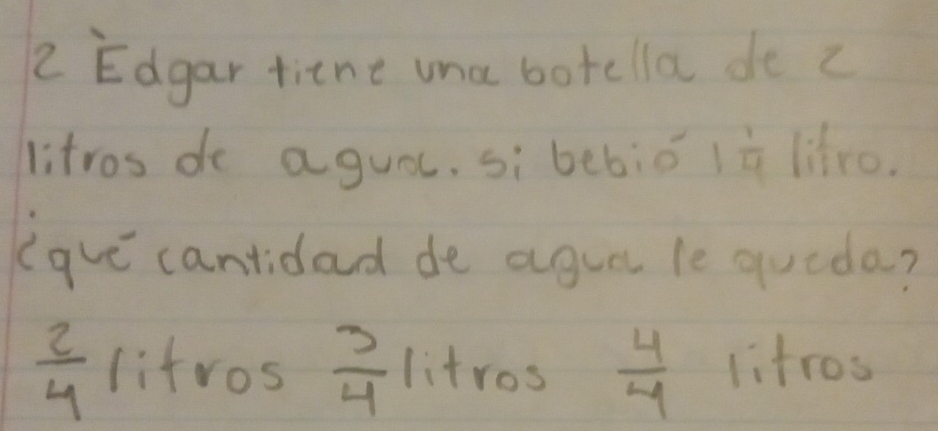 2 Edgar tiene una botella de 2
litros de agua. si bebió 1 1/4 litro.
¿qué cantidad de agua le queda?
2/4 litros 3/4 litros 4/4 litros